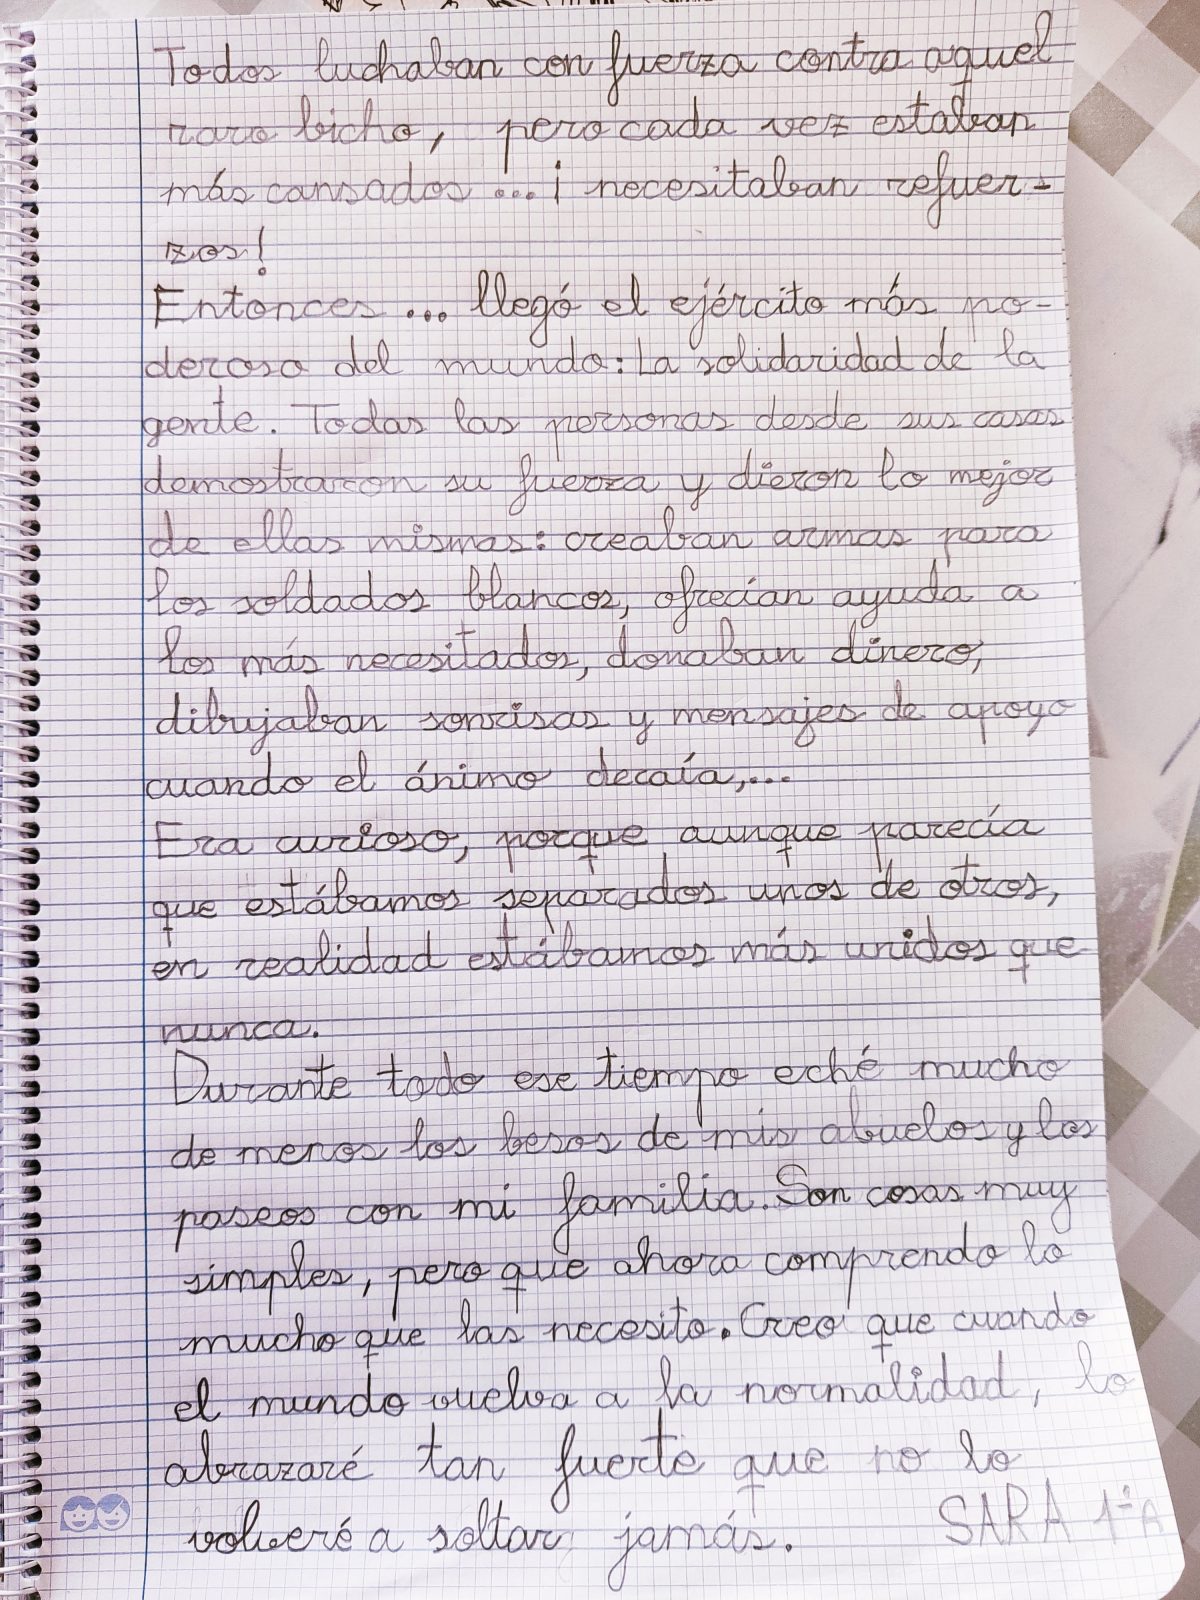 Todos luchaban con fuerza contra aquel
raro bicho, pero cada vez estaban
más cansados ... ¡ necesitaban refuer-
zos!
Entonces ... llegó el ejército más po-
deroso del mundo: La solidaridad de la
gente. Todas las personas desde sus casas
demostraron su fuerza y dieron lo mejor
de ellas mismas: creaban armas para
los soldados blancos, ofrecían ayuda a
los más necesitados, donaban dinero,
dibujaban sonrisas y mensajes de apoyo
cuando el ánimo decaía,...
Era curioso, porque aunque parecía
que estábamos separados unos de otros,
en realidad estábamos más unidos que
nunca.
Durante todo ese tiempo eché mucho
de menos los besos de mis abuelos y los
paseos con mi familia. Son cosas muy
simples, pero que ahora comprendo lo
mucho que las necesito. Creo que cuando
el mundo vuelva a la normalidad, lo
abrazaré tan fuerte que no lo
volveré a soltar jamás.
SARA 1ºA